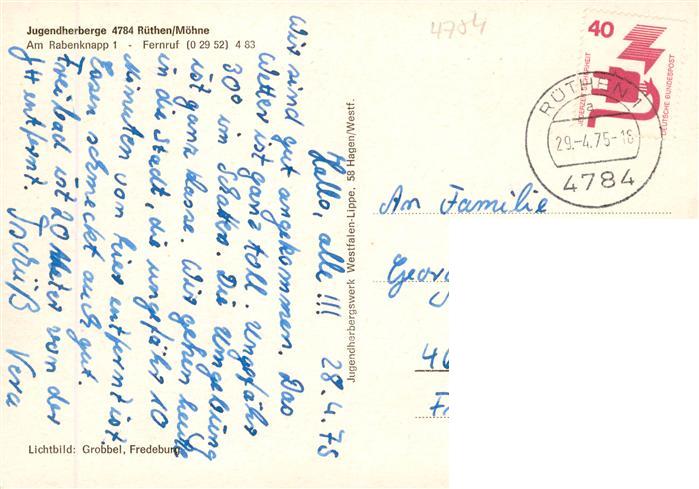 Jugendherberge 4784 Rüthen/Möhne
Am Rabenknapp 1 - Fernruf (0 29 52) 4 83
4784
40
JEDERZEIT SICHERHEIT
DEUTSCHE BUNDESPOST
RÜTHEN 1
a
29.-4.75-18
4784
Hallo, alle!!! 28.4.75
Wir sind gut angekommen. Das
Wetter ist ganz toll. Ungefähr
30° im Schatten. Die Umgebung
ist ganz klasse. Wir gehen heute
in die Stadt, die ungefähr 10
Minuten von hier entfernt ist.
Essen schmeckt auch gut.
Freibad ist 20 Meter von der
JH entfernt. Tschüß Vera
Jugendherbergswerk Westfalen-Lippe, 58 Hagen/Westf.
An Familie
Georg
46
Lichtbild: Grobbel, Fredeburg